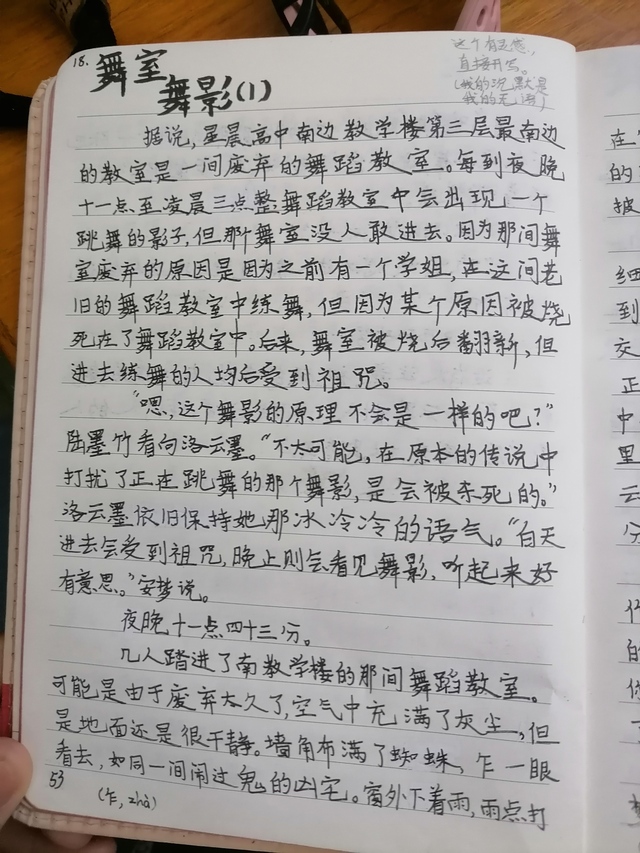 18.
舞室
舞影(1)
这个有灵感,
直接开写。
(我的沉默是
我的无语)
据说,星晨高中南边教学楼第三层最南边
的教室是一间废弃的舞蹈教室。每到夜晚
十一点至凌晨三点整,舞蹈教室中会出现一个
跳舞的影子,但那个舞室没人敢进去。因为那间舞
室废弃的原因是因为之前有一个学姐,在这间老
旧的舞蹈教室中练舞,但因为某个原因被烧
死在了舞蹈教室中。后来,舞室被烧后翻新,但
进去练舞的人均后受到祖咒。
“嗯,这个舞影的原理不会是一样的吧?”
陆墨竹看向洛云墨。“不太可能,在原本的传说中
打扰了正在跳舞的那个舞影,是会被杀死的。”
洛云墨依旧保持她那冰冷冷的语气。“白天
进去会受到祖咒,晚上则会看见舞影,听起来好
有意思。”安梦说。
夜晚十一点四十三分。
几人踏进了南教学楼的那间舞蹈教室。
可能是由于废弃太久了,空气中充满了灰尘,但
是地面还是很干静。墙角布满了蜘蛛,乍一眼
看去,如同一间闹过鬼的凶宅。窗外下着雨,雨点打
53
(乍,zhà)
在
的
披
细
到
交
正
中
里
云
分
的
你